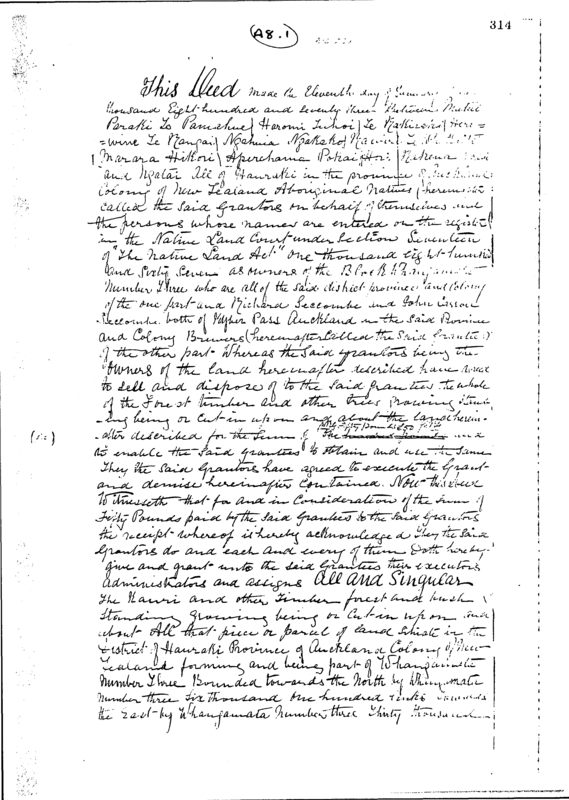 A8.1
314
This Deed made the Eleventh day of
thousand Eight hundred and seventy three Between
Paraki Te Pamahue Haromi Te
Te Mangai Ngahuia
Marara Hikori Aperahama
and Ngatai All of Hauraki in the province of
Colony of New Zealand Aboriginal Natives (hereinafter
called the said Grantors on behalf of themselves and
the persons whose names are entered on the register
in the Native Land Court under Section Seventeen
of "The Native Land Act" One thousand eight hundred
and Sixty Seven as owners of the Block Whangamata
Number Three who are all of the said district province and Colony
of the one part and Richard Seccombe and John Carson
Seccombe both of Khyber Pass Auckland in the Said Province
and Colony Brewers (hereinafter Called the Said Grantees)
of the other part Whereas the Said Grantors being the
Owners of the land hereinafter described have agreed
to sell and dispose of to the Said Grantees the whole
of the Forest timber and other trees growing stand
ing being or cut in upon and about the land herein
after described for the Sum of Fifty Pounds and
(Sic)
to enable the Said Grantees to obtain and use the Same
They the Said Grantors have agreed to execute the Grant
and demise hereinafter contained. Now this deed
Witnesseth that for and in Consideration of the Sum of
Fifty Pounds paid by the Said Grantees to the Said Grantors
the receipt whereof is hereby acknowledged They the Said
Grantors do and each and every of them Doth hereby
give and grant unto the said Grantees their executors
administrators and assigns All and Singular
The Kauri and other Timber forest and bush
Standing growing being or Cut in upon and
about All that piece or parcel of land Situate in the
District of Hauraki Province of Auckland Colony of New
Zealand forming and being part of Whangamata
Number Three Bounded towards the North by Whangamata
Number three Six thousand One hundred links towards
the East by Whangamata Number three Thirty thousand